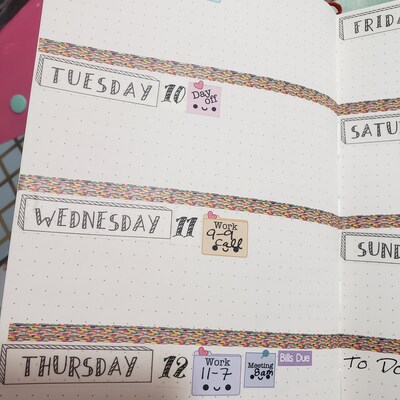 TUESDAY 10 Day off
WEDNESDAY 11 Work 9-9
THURSDAY 12 Work 11-7 Meeting 8am Bills Due
FRIDA
SATU
SUND
To Do